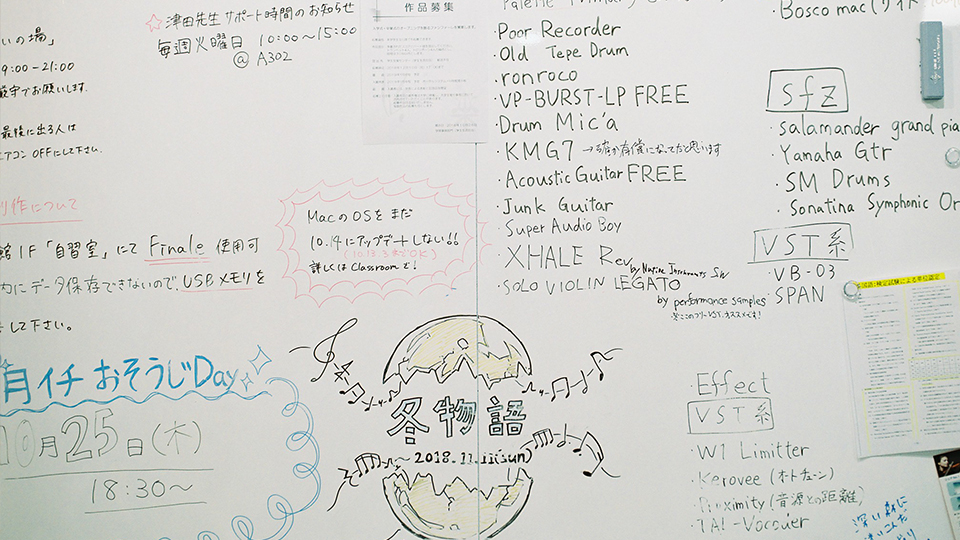 いの場」
9:00-21:00
厳守でお願いします.
最後に出る人は
エアコン OFFにして下さい.
☆津田先生サポート時間のお知らせ
毎週火曜日 10:00〜15:00
@ A302
作品募集
制作について
館1F「自習室」にて Finale 使用可
内にデータ保存できないので、USBメモリを
して下さい。
MacのOSをまだ
10.14にアップデートしない!!
(10.13.3までOK)
詳しくは Classroomで!
月イチ おそうじDay
10月25日(木)
18:30〜
冬物語
〜2018.11.11(sun)
・Poor Recorder
・Old Tepe Drum
・ronroco
・VP-BURST-LP FREE
・Drum Mic'a
・KMG7 →確か有償になってたと思います
・Acoustic Guitar FREE
・Junk Guitar
・Super Audio Boy
・XHALE Rev
by Native Instruments
・SOLO VIOLIN LEGATO
by performance samples
・Bosco mac
sfz
・salamander grand pia
・Yamaha Gtr
・SM Drums
・Sonatina Symphonic Or
VST系
・VB-03
・SPAN
・Effect
VST系
・W1 Limitter
・Kerovee (オトチューン)
・Proximity (音源との距離)
・TAL-Vocoder
深い森に